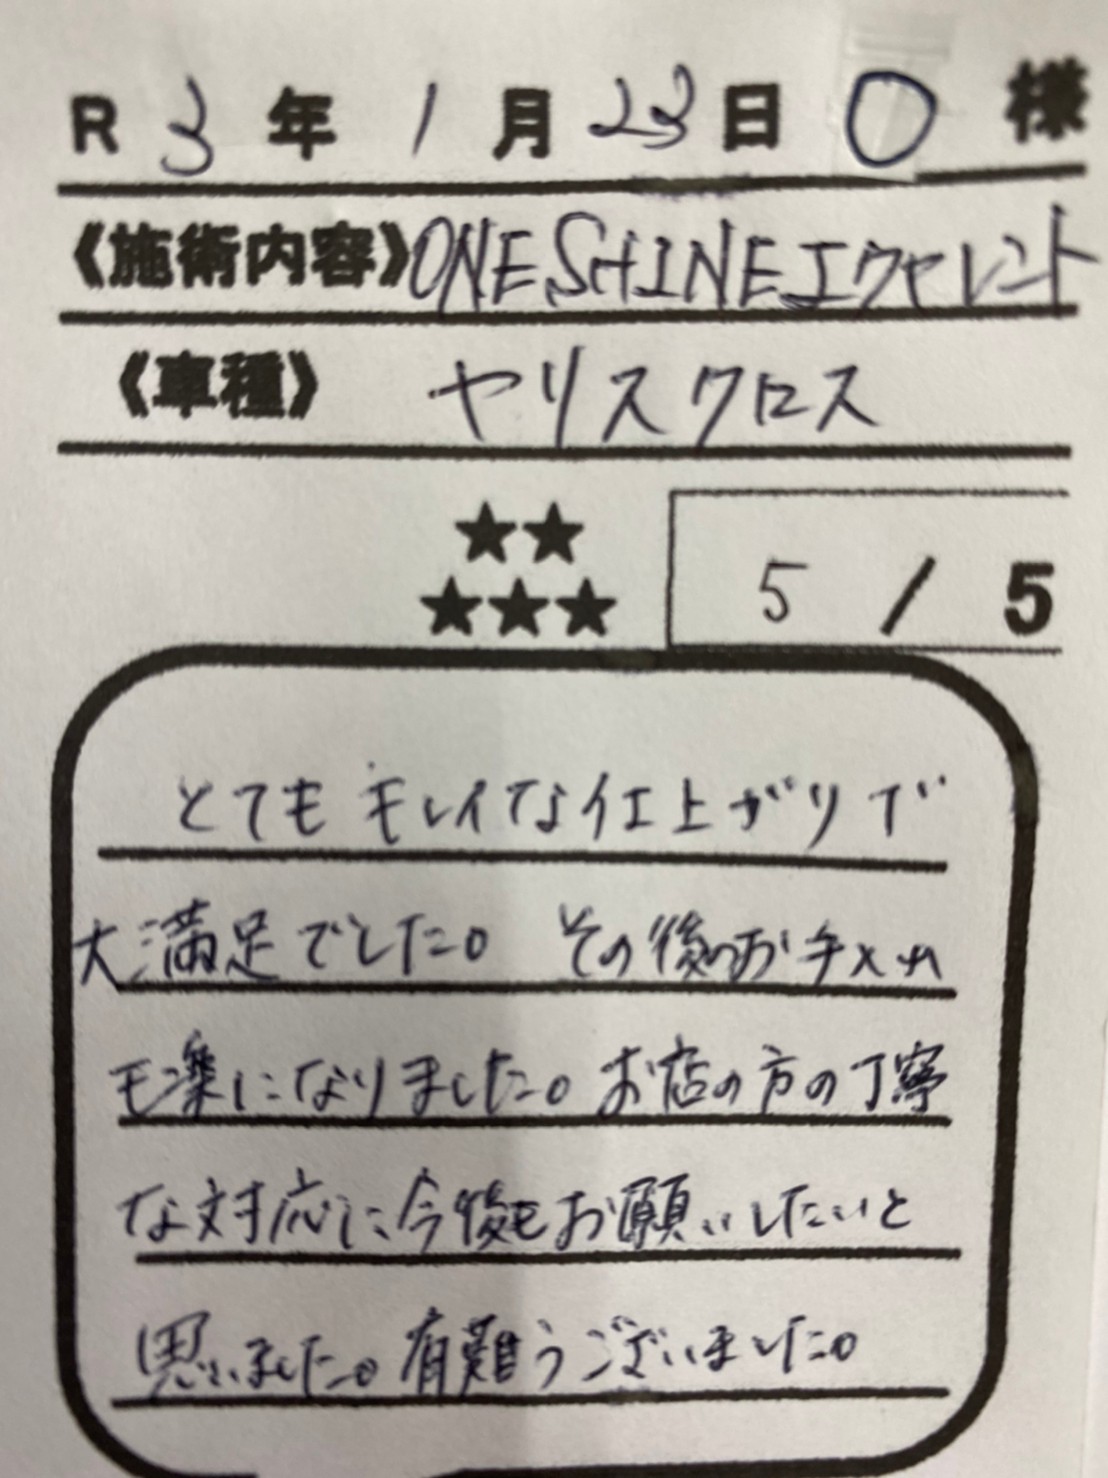 R 3 年 1 月 23 日 O 様
《施術内容》ONESHINEエクセレント
《車種》 ヤリスクロス
★★
★★★ 5 / 5
とてもキレイな仕上がりで
大満足でした。 その後のお手入れ
も楽になりました。お店の方の丁寧
な対応に今後もお願いしたいと
思いました。有難うございました。